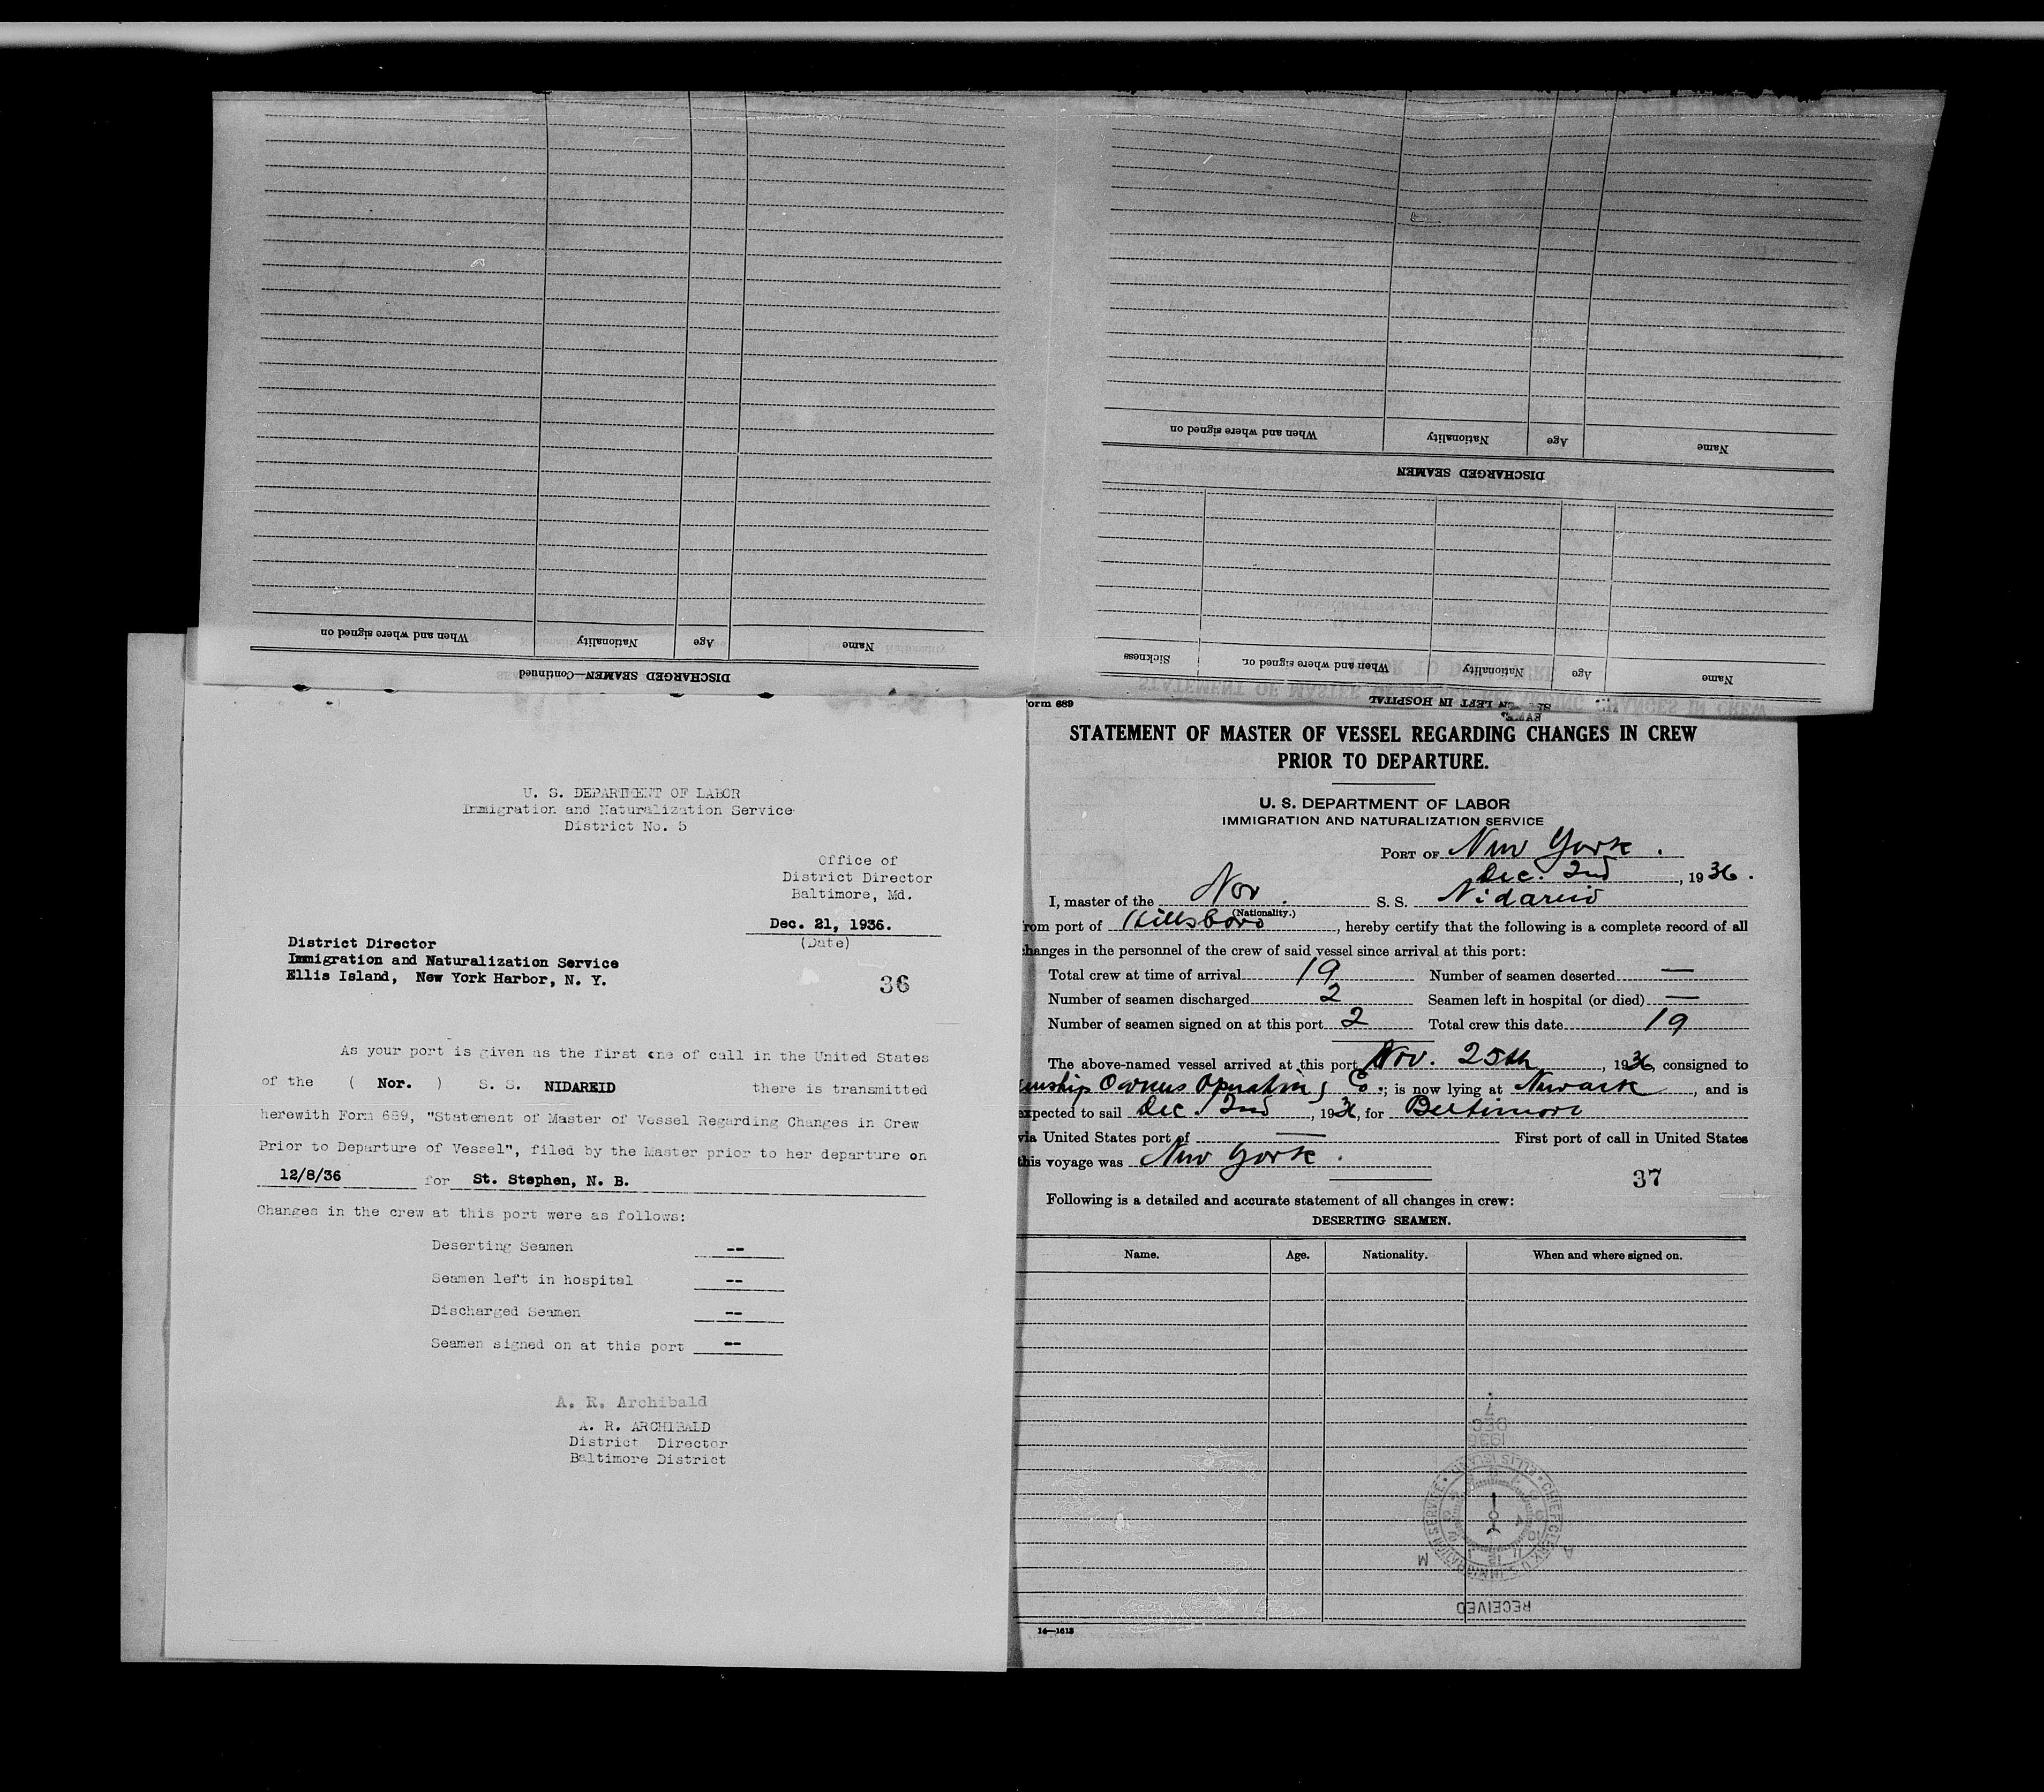 When and where signed on
Nationality
Age
Name
DISCHARGED SEAMEN—Continued
When and where signed on
Nationality
Age
Name
DISCHARGED SEAMEN
Sickness
When and where signed on
Nationality
Age
Name
LEFT IN HOSPITAL
U. S. DEPARTMENT OF LABOR
Immigration and Naturalization Service
District No. 5
Office of
District Director
Baltimore, Md.
Dec. 21, 1936.
(Date)
District Director
Immigration and Naturalization Service
Ellis Island, New York Harbor, N. Y.
36
As your port is given as the first one of call in the United States
of the ( Nor. ) S. S. NIDAREID there is transmitted
herewith Form 689, "Statement of Master of Vessel Regarding Changes in Crew
Prior to Departure of Vessel", filed by the Master prior to her departure on
12/8/36 for St. Stephen, N. B.
Changes in the crew at this port were as follows:
Deserting Seamen --
Seamen left in hospital --
Discharged Seamen --
Seamen signed on at this port --
A. R. Archibald
A. R. ARCHIBALD
District Director
Baltimore District
orm 689
STATEMENT OF MASTER OF VESSEL REGARDING CHANGES IN CREW
PRIOR TO DEPARTURE.
U. S. DEPARTMENT OF LABOR
IMMIGRATION AND NATURALIZATION SERVICE
PORT OF New York.
Dec. 2nd, 1936.
I, master of the Nor. S. S. Nidareid
(Nationality.)
rom port of Hillsboro, hereby certify that the following is a complete record of all
hanges in the personnel of the crew of said vessel since arrival at this port:
Total crew at time of arrival 19 Number of seamen deserted —
Number of seamen discharged 2 Seamen left in hospital (or died) —
Number of seamen signed on at this port 2 Total crew this date 19
The above-named vessel arrived at this port Nov. 25th, 1936, consigned to
mship Owners Operating Co.; is now lying at Newark, and is
expected to sail Dec. 2nd, 1936, for Baltimore
via United States port of — First port of call in United States
this voyage was New York.
37
Following is a detailed and accurate statement of all changes in crew:
DESERTING SEAMEN.
Name. Age. Nationality. When and where signed on.
1936
DEC
7
CHIEF CLERK U.S. IMMIGRATION SERVICE • ELLIS ISLAND •
A M
RECEIVED
14—1613